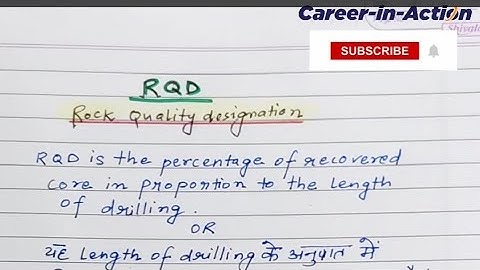 Career-in-Action
Shivale
SUBSCRIBE
RQD
Rock Quality designation
RQD is the percentage of recovered
core in proportion to the length
of drilling.
OR
यह Length of drilling के अनुपात में